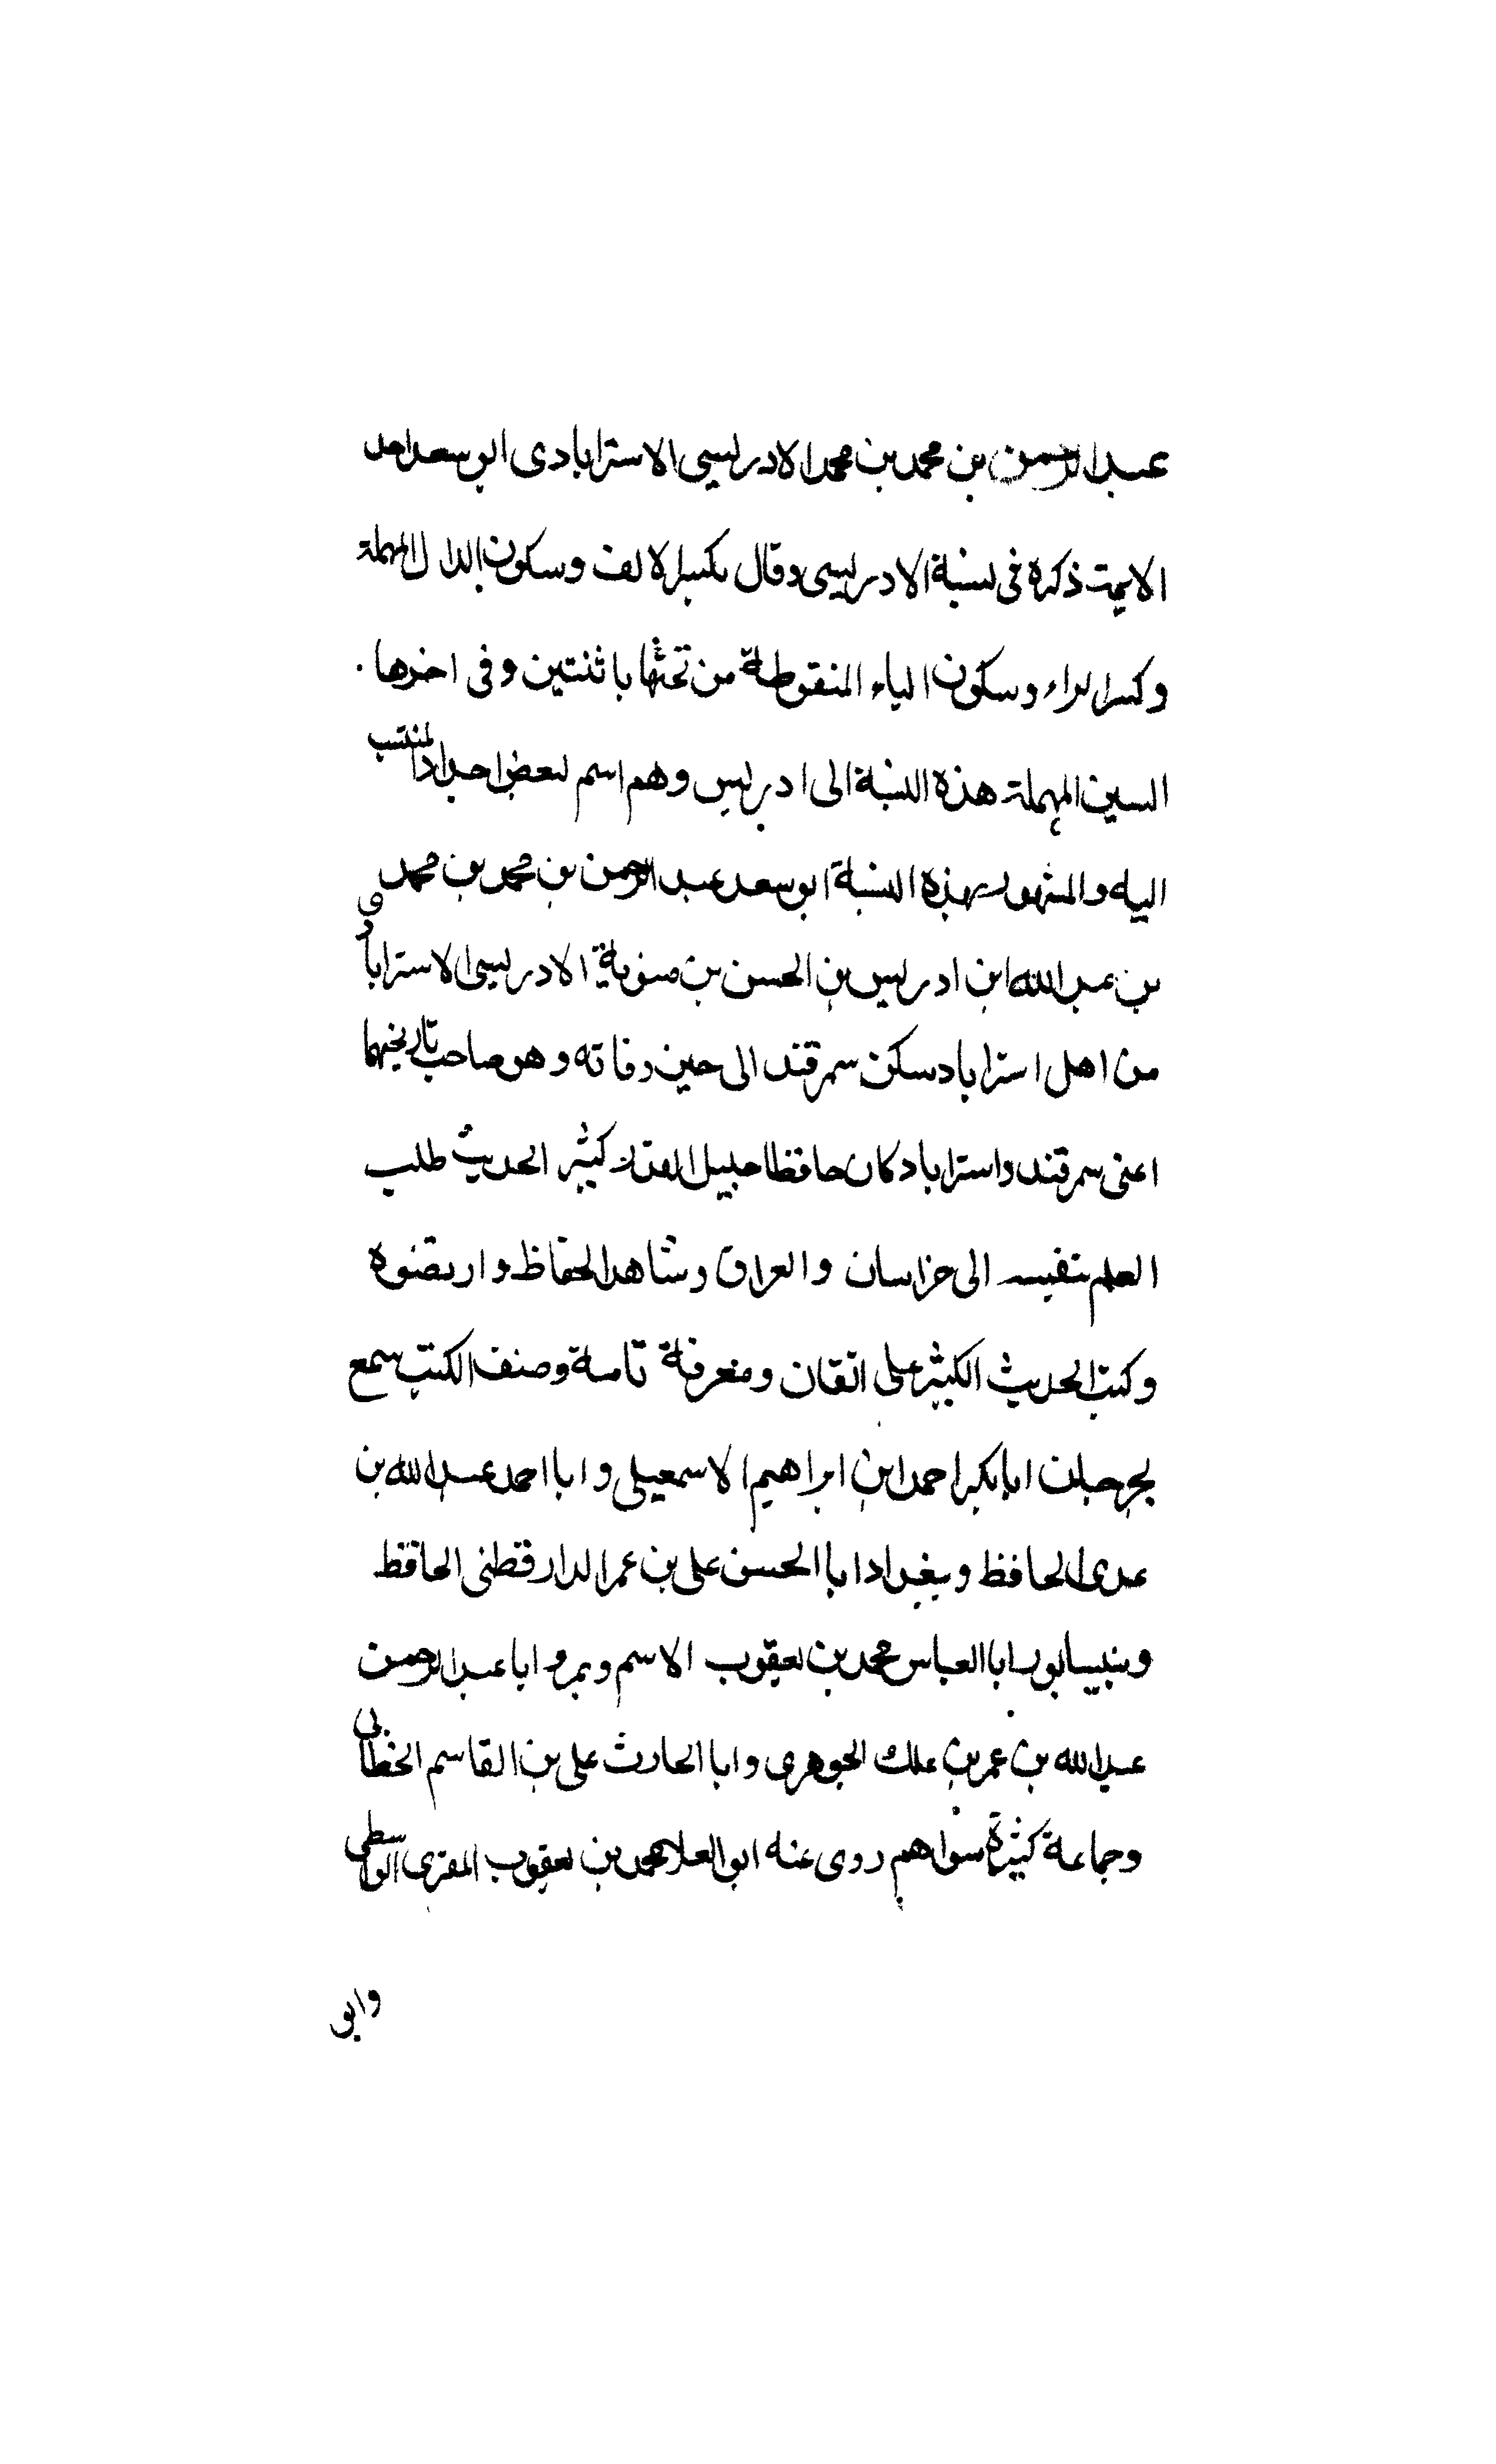 عبد الرحمن بن محمد بن محمد الادريسى الاسترابادى ابو سعد احد
الايمت ذكره فى نسبة الادريسى وقال بكسر الالف وسكون الدال المهملة
وكسر الراء وسكون الياء المنقوطة من تحتها باثنتين وفى اخرها .
السين المهملة هذه النسبة الى ادريس وهم اسم لبعض اجداد المنتسب
اليه والمشهور بهذه النسبة ابو سعد عبد الرحمن بن محمد بن محمد
بن عبد الله ابن ادريس بن الحسن بن متوية الادريسى الاسترابادى
من اهل استراباد سكن سمرقند الى حين وفاته وهو صاحب تاريخيهما
اعنى سمرقند واستراباد كان حافظا جليل القدر كثير الحديث طلب
العلم بنفسه الى خراسان والعراق وشاهد الحفاظ وارتضوه
وكتب الحديث الكثير على اتقان ومعرفة تامة وصنف الكتب سمع
بجرجان ابا بكر احمد ابن ابراهيم الاسمعيلى وابا احمد عبد الله بن
عدى الحافظ وببغداد ابا الحسن على بن عمر الدارقطنى الحافظ
وبنيسابور ابا العباس محمد بن يعقوب الاسم وبمرو ابا عبد الرحمن
عبد الله بن عمر بن علك الجوهرى وابا الحارث على بن القاسم الخطابى
وجماعة كثيرة سواهم روى عنه ابو العلا محمد بن يعقوب المقرى الواسطى
وابو